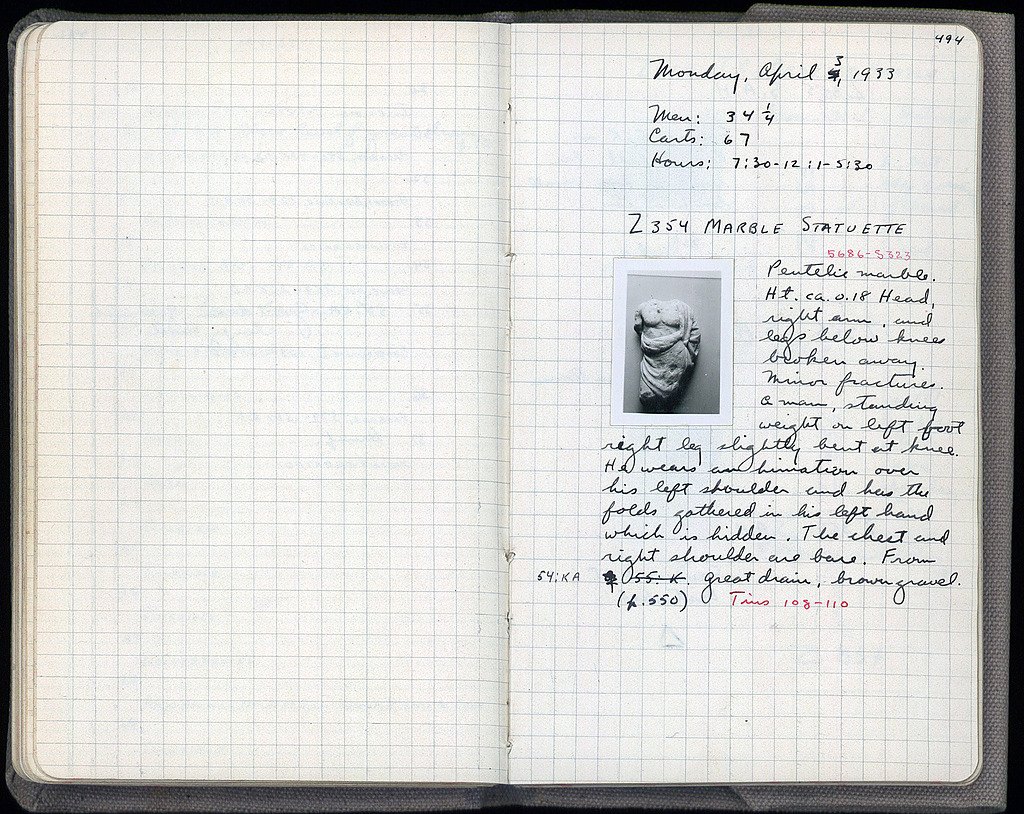 494
Monday, April 3, 1933
Men: 34 1/4
Carts: 67
Hours: 7:30-12 : 1-5:30
Z 354 MARBLE STATUETTE
5686-S323
Pentelic marble.
Ht. ca. 0.18 Head,
right arm, and
legs below knees
broken away.
Minor fractures.
A man, standing
weight on left foot
right leg slightly bent at knee.
He wears an himation over
his left shoulder and has the
folds gathered in his left hand
which is hidden. The chest and
right shoulder are bare. From
54:KA 55: K. great drain, brown gravel.
(p. 550) Tins 108-110